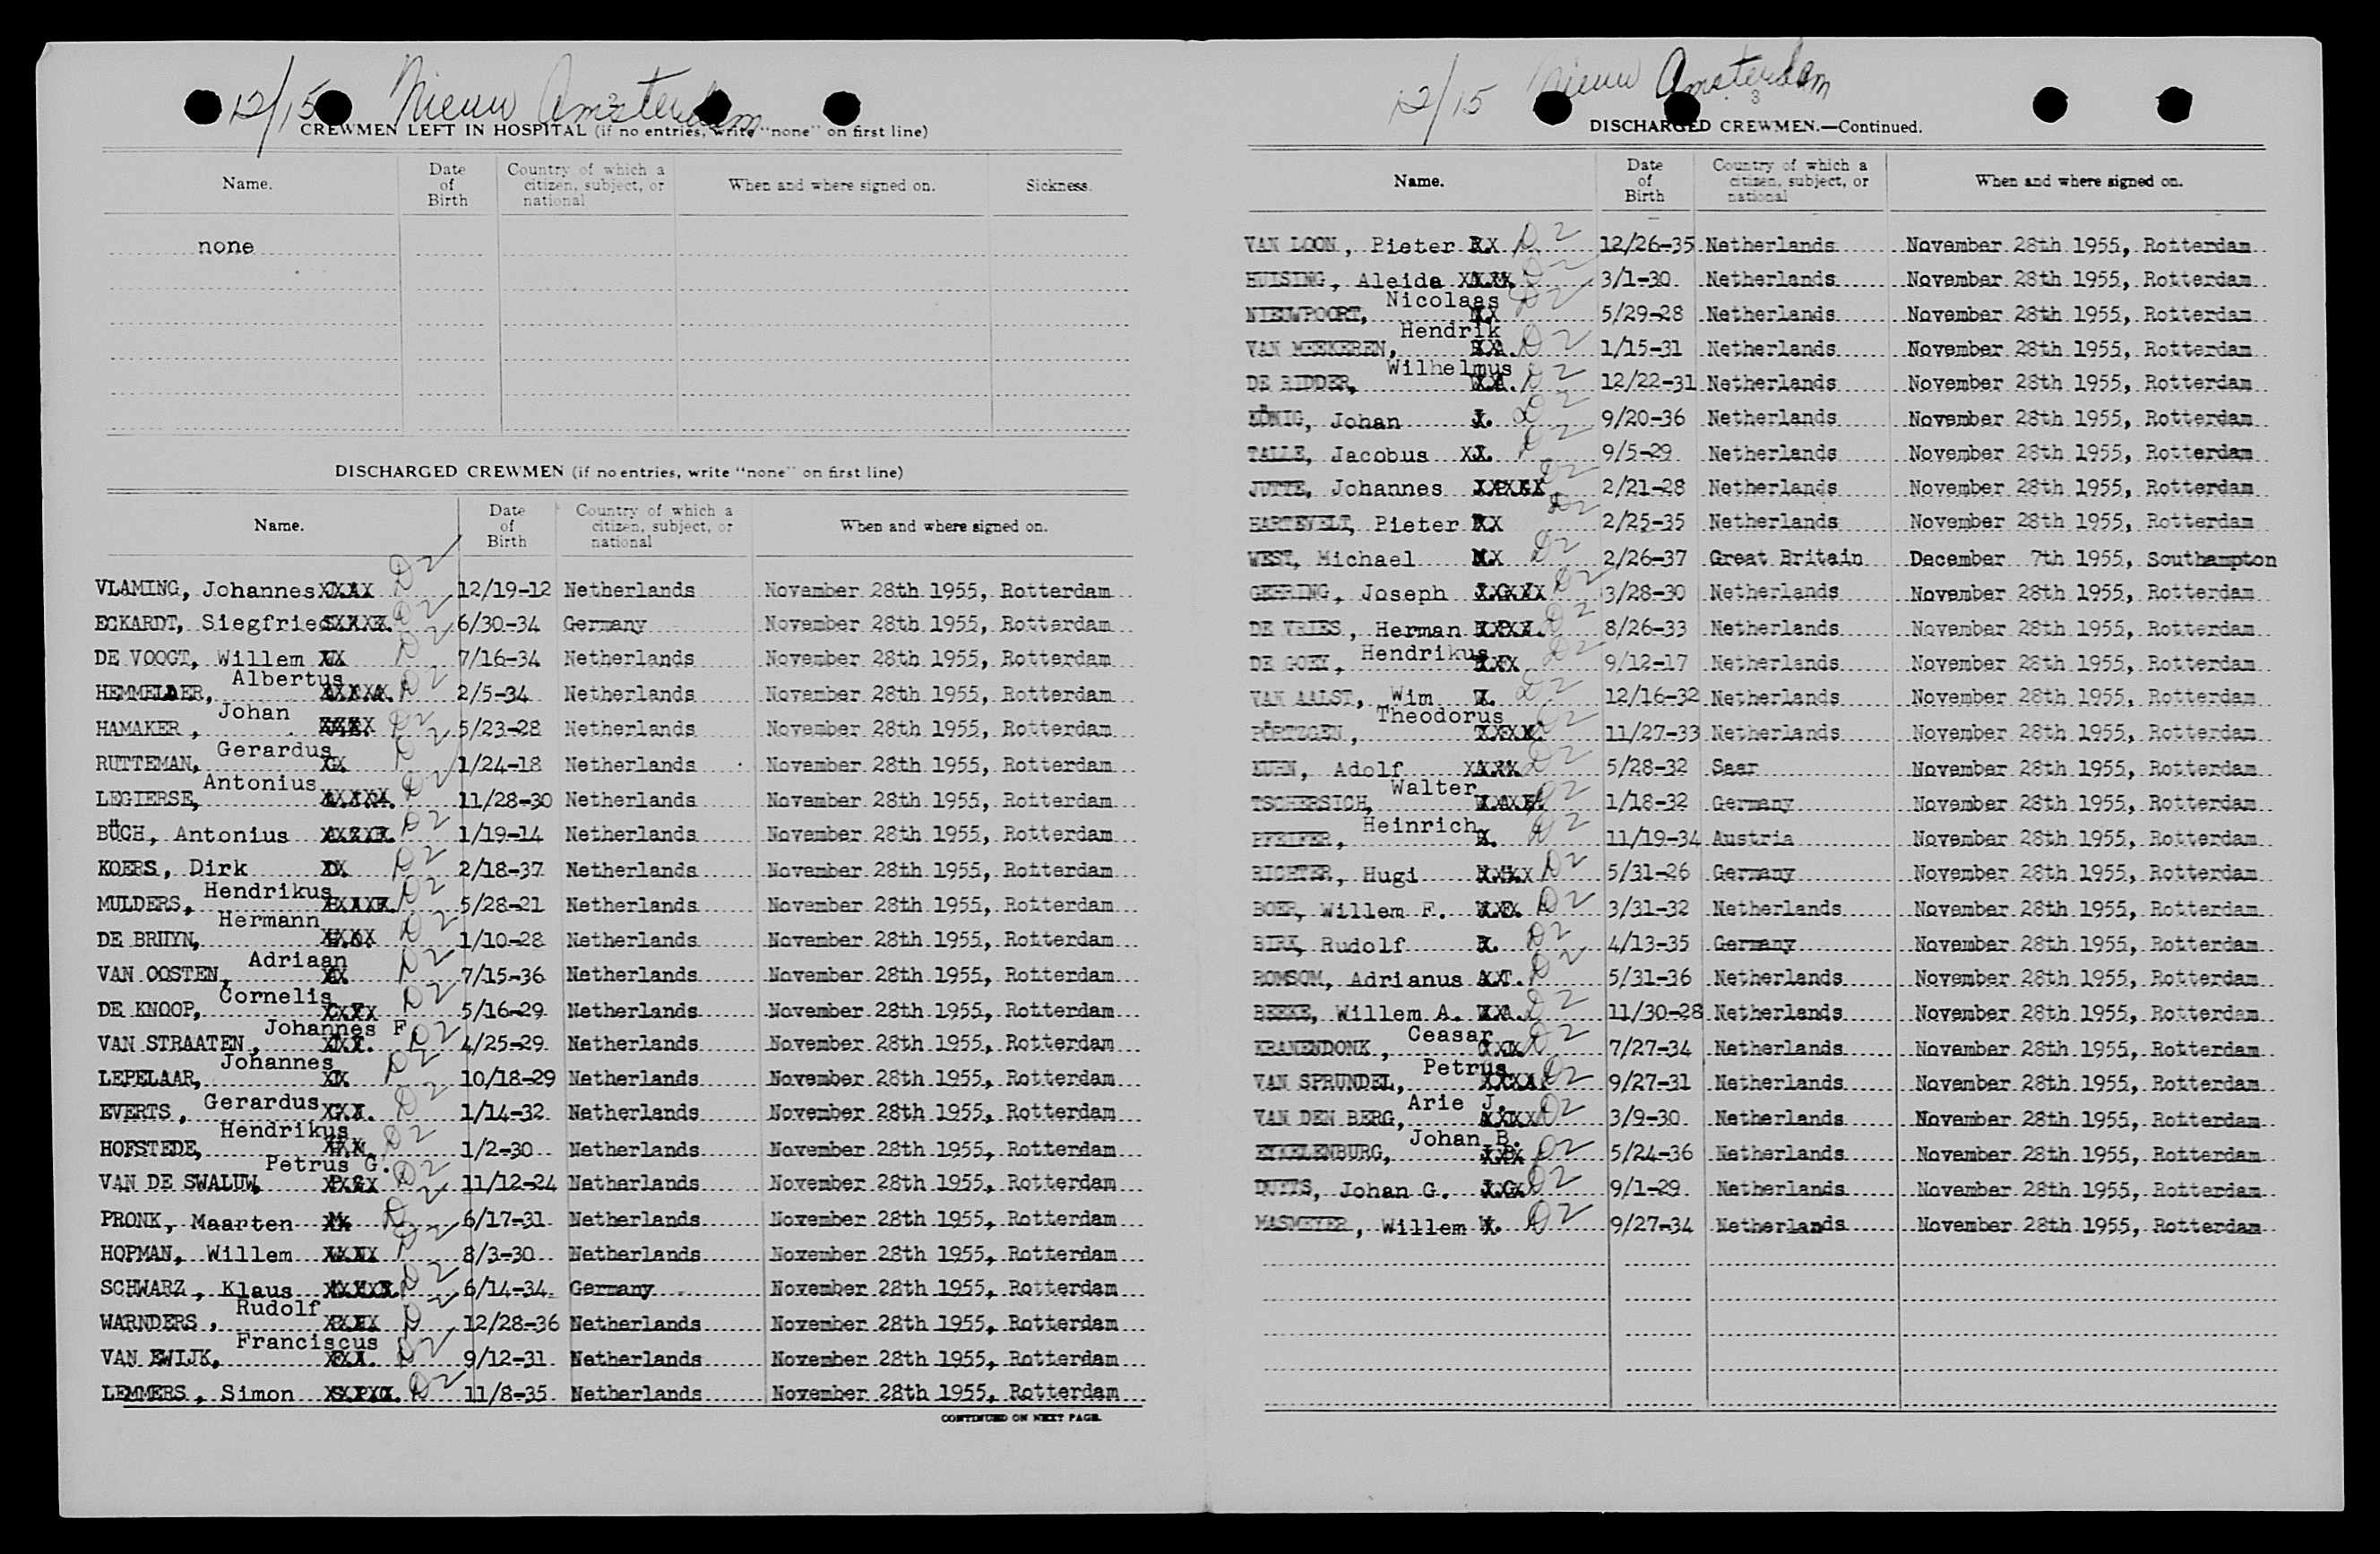 12/15 Nieuw Amsterdam
2
CREWMEN LEFT IN HOSPITAL (if no entries, write "none" on first line)
Name. Date of Birth Country of which a citizen, subject, or national When and where signed on. Sickness.
none
DISCHARGED CREWMEN (if no entries, write "none" on first line)
Name. Date of Birth Country of which a citizen, subject, or national When and where signed on.
VLAMING, Johannes D2 12/19-12 Netherlands November 28th 1955, Rotterdam
ECKARDT, Siegfried D2 6/30-34 Germany November 28th 1955, Rotterdam
DE VOOGT, Willem D2 7/16-34 Netherlands November 28th 1955, Rotterdam
HEMMELDER, Albertus D2 2/5-34 Netherlands November 28th 1955, Rotterdam
HAMAKER, Johan D2 5/23-28 Netherlands November 28th 1955, Rotterdam
RUTTEMAN, Gerardus D2 1/24-18 Netherlands November 28th 1955, Rotterdam
LEGIERSE, Antonius D2 11/28-30 Netherlands November 28th 1955, Rotterdam
BÜCH, Antonius D2 1/19-14 Netherlands November 28th 1955, Rotterdam
KOERS, Dirk D2 2/18-37 Netherlands November 28th 1955, Rotterdam
MULDERS, Hendrikus D2 5/28-21 Netherlands November 28th 1955, Rotterdam
DE BRUYN, Hermann D2 1/10-28 Netherlands November 28th 1955, Rotterdam
VAN OOSTEN, Adriaan D2 7/15-36 Netherlands November 28th 1955, Rotterdam
DE KNOOP, Cornelis D2 5/16-29 Netherlands November 28th 1955, Rotterdam
VAN STRAATEN, Johannes F. D2 4/25-29 Netherlands November 28th 1955, Rotterdam
LEPELAAR, Johannes D2 10/18-29 Netherlands November 28th 1955, Rotterdam
EVERTS, Gerardus D2 1/14-32 Netherlands November 28th 1955, Rotterdam
HOFSTEDE, Hendrikus D2 1/2-30 Netherlands November 28th 1955, Rotterdam
VAN DE SWALUW, Petrus G. D2 11/12-24 Netherlands November 28th 1955, Rotterdam
PRONK, Maarten D2 6/17-31 Netherlands November 28th 1955, Rotterdam
HOPMAN, Willem D2 8/3-30 Netherlands November 28th 1955, Rotterdam
SCHWARZ, Klaus D2 6/14-34 Germany November 28th 1955, Rotterdam
WARNDERS, Rudolf D2 12/28-36 Netherlands November 28th 1955, Rotterdam
VAN EWIJK, Franciscus D2 9/12-31 Netherlands November 28th 1955, Rotterdam
LEMMERS, Simon D2 11/8-35 Netherlands November 28th 1955, Rotterdam
CONTINUED ON NEXT PAGE.
12/15 Nieuw Amsterdam
3
DISCHARGED CREWMEN.—Continued.
Name. Date of Birth Country of which a citizen, subject, or national When and where signed on.
VAN LOON, Pieter D2 12/26-35 Netherlands November 28th 1955, Rotterdam
HUISING, Aleida D2 3/1-30 Netherlands November 28th 1955, Rotterdam
NIEUWPOORT, Nicolaas D2 5/29-28 Netherlands November 28th 1955, Rotterdam
VAN MEEKEREN, Hendrik D2 1/15-31 Netherlands November 28th 1955, Rotterdam
DE RIDDER, Wilhelmus D2 12/22-31 Netherlands November 28th 1955, Rotterdam
KÖNIG, Johan D2 9/20-36 Netherlands November 28th 1955, Rotterdam
TALLE, Jacobus D2 9/5-29 Netherlands November 28th 1955, Rotterdam
JUTTE, Johannes D2 2/21-28 Netherlands November 28th 1955, Rotterdam
HARTEVELT, Pieter D2 2/25-35 Netherlands November 28th 1955, Rotterdam
WEST, Michael D2 2/26-37 Great Britain December 7th 1955, Southampton
GEHRING, Joseph D2 3/28-30 Netherlands November 28th 1955, Rotterdam
DE VRIES, Herman D2 8/26-33 Netherlands November 28th 1955, Rotterdam
DE GOEY, Hendrikus D2 9/12-17 Netherlands November 28th 1955, Rotterdam
VAN AALST, Wim D2 12/16-32 Netherlands November 28th 1955, Rotterdam
PÖRTZGEN, Theodorus D2 11/27-33 Netherlands November 28th 1955, Rotterdam
KUHN, Adolf D2 5/28-32 Saar November 28th 1955, Rotterdam
TSCHERSICH, Walter D2 1/18-32 Germany November 28th 1955, Rotterdam
PFEIFER, Heinrich D2 11/19-34 Austria November 28th 1955, Rotterdam
RICHTER, Hugi D2 5/31-26 Germany November 28th 1955, Rotterdam
BOER, Willem F. D2 3/31-32 Netherlands November 28th 1955, Rotterdam
BIRK, Rudolf D2 4/13-35 Germany November 28th 1955, Rotterdam
ROMSOM, Adrianus D2 5/31-36 Netherlands November 28th 1955, Rotterdam
BEEKE, Willem A. D2 11/30-28 Netherlands November 28th 1955, Rotterdam
KRANENDONK, Ceasar D2 7/27-34 Netherlands November 28th 1955, Rotterdam
VAN SPRUNDEL, Petrus D2 9/27-31 Netherlands November 28th 1955, Rotterdam
VAN DEN BERG, Arie J. D2 3/9-30 Netherlands November 28th 1955, Rotterdam
EYKELENBURG, Johan B. D2 5/24-36 Netherlands November 28th 1955, Rotterdam
Johan G. D2 9/1-29 Netherlands November 28th 1955, Rotterdam
MASMEYER, Willem D2 9/27-34 Netherlands November 28th 1955, Rotterdam